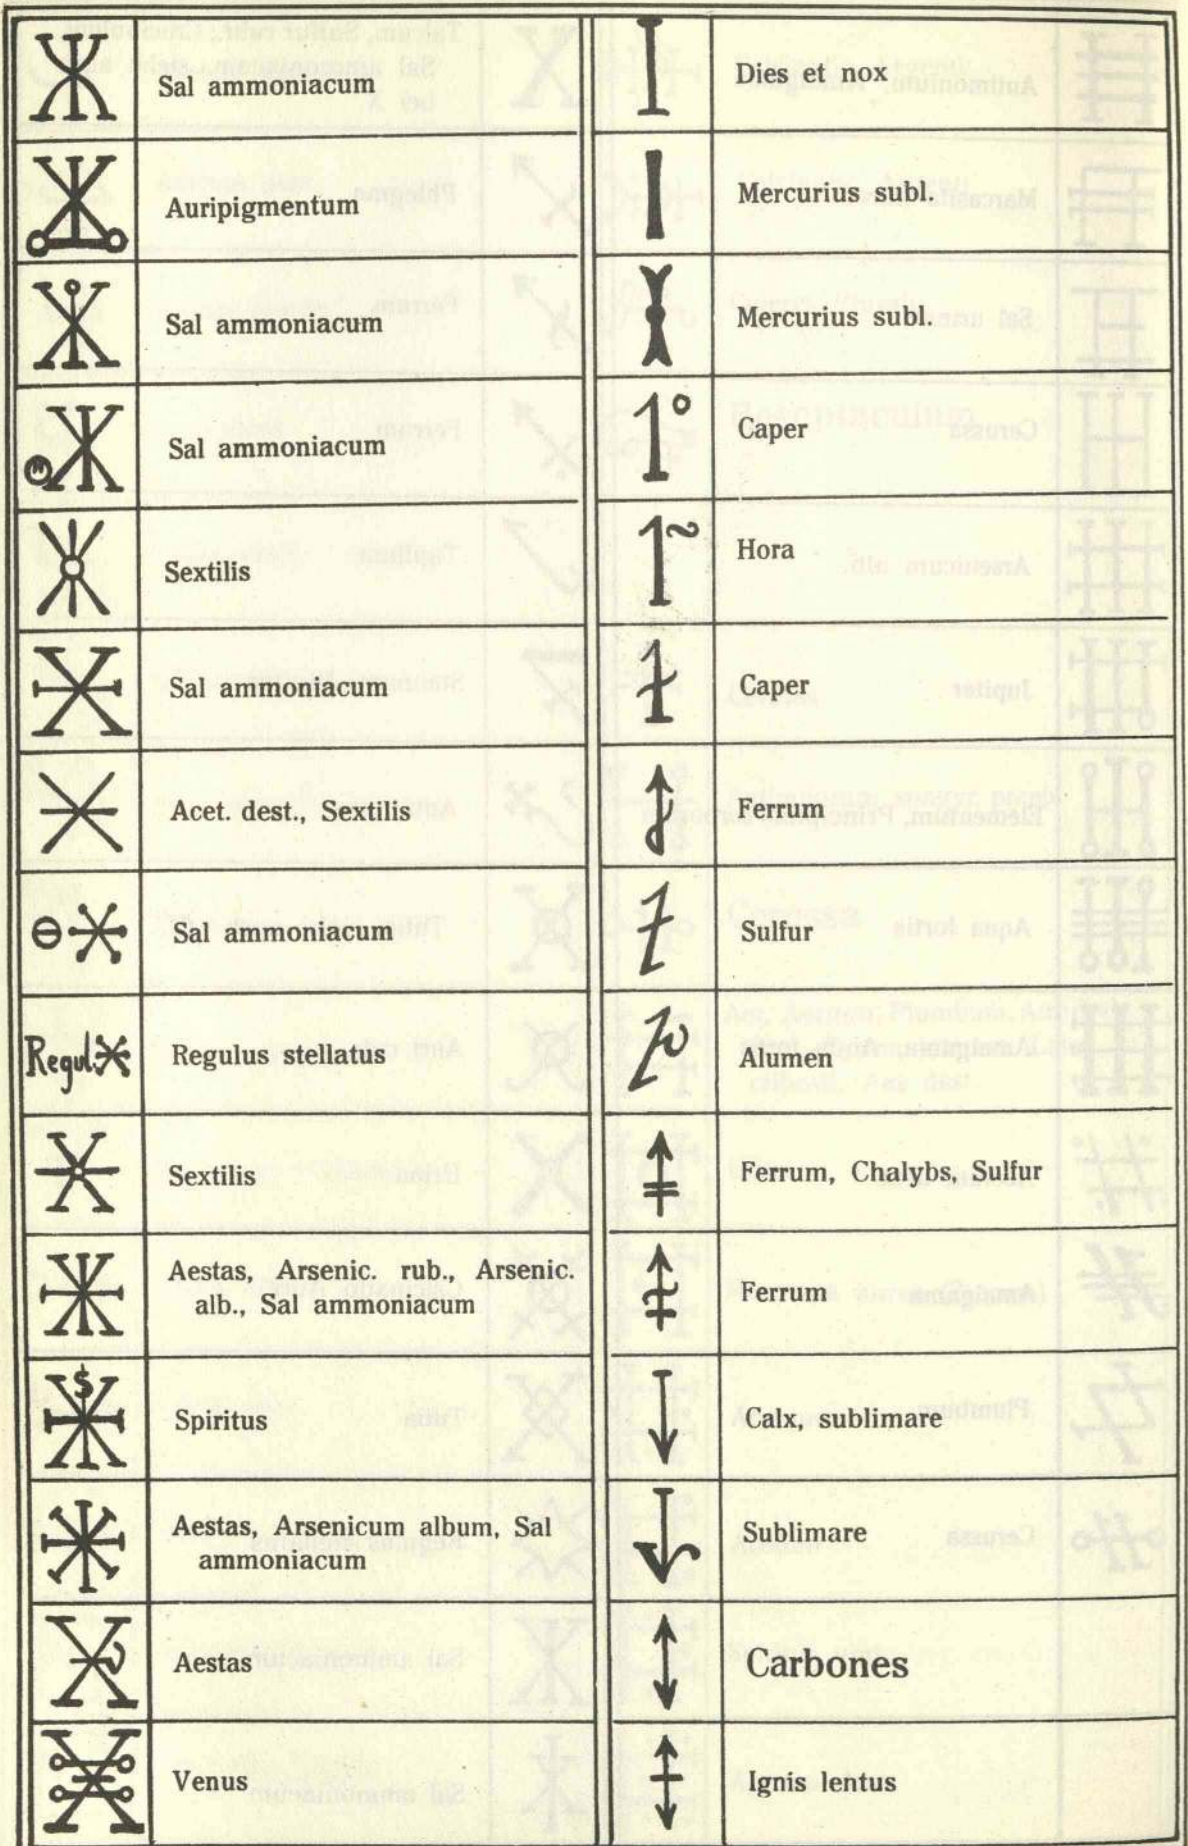 Sal ammoniacum
Auripigmentum
Sal ammoniacum
Sal ammoniacum
Sextilis
Sal ammoniacum
Acet. dest., Sextilis
Sal ammoniacum
Regul.
Regulus stellatus
Sextilis
Aestas, Arsenic. rub., Arsenic.
alb., Sal ammoniacum
Spiritus
Aestas, Arsenicum album, Sal
ammoniacum
Aestas
Venus
Dies et nox
Mercurius subl.
Mercurius subl.
Caper
Hora
Caper
Ferrum
Sulfur
Alumen
Ferrum, Chalybs, Sulfur
Ferrum
Calx, sublimare
Sublimare
Carbones
Ignis lentus